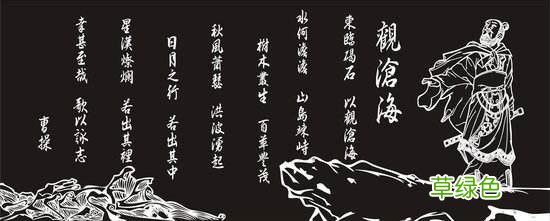 觀滄海
東臨碣石 以觀滄海
水何澹澹 山島竦峙
樹木叢生 百草豐茂
秋風蕭瑟 洪波湧起
日月之行 若出其中
星漢燦爛 若出其裡
幸甚至哉 歌以詠志
曹操
草绿色